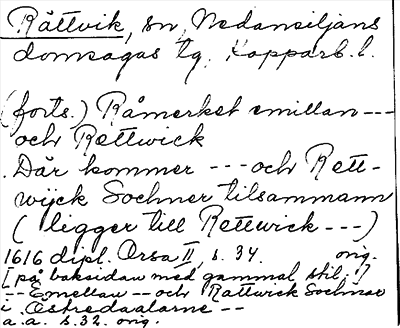 Rättvik, sn, Nedansiljans
domsagas tg. Kopparb. l.
(forts.) Råmerket emillan ---
och Rettwick
Där kommer --- och Rett-
wijck Sochner tilsammann
( ligger till Rettwick --- )
1616 dipl. Orsa II, s. 34. orig.
[ på baksidan med gammal stil: ]
-- Emellan -- och Rattwick Sochnar
i Östredaalarne --
a.a. s. 32. orig.